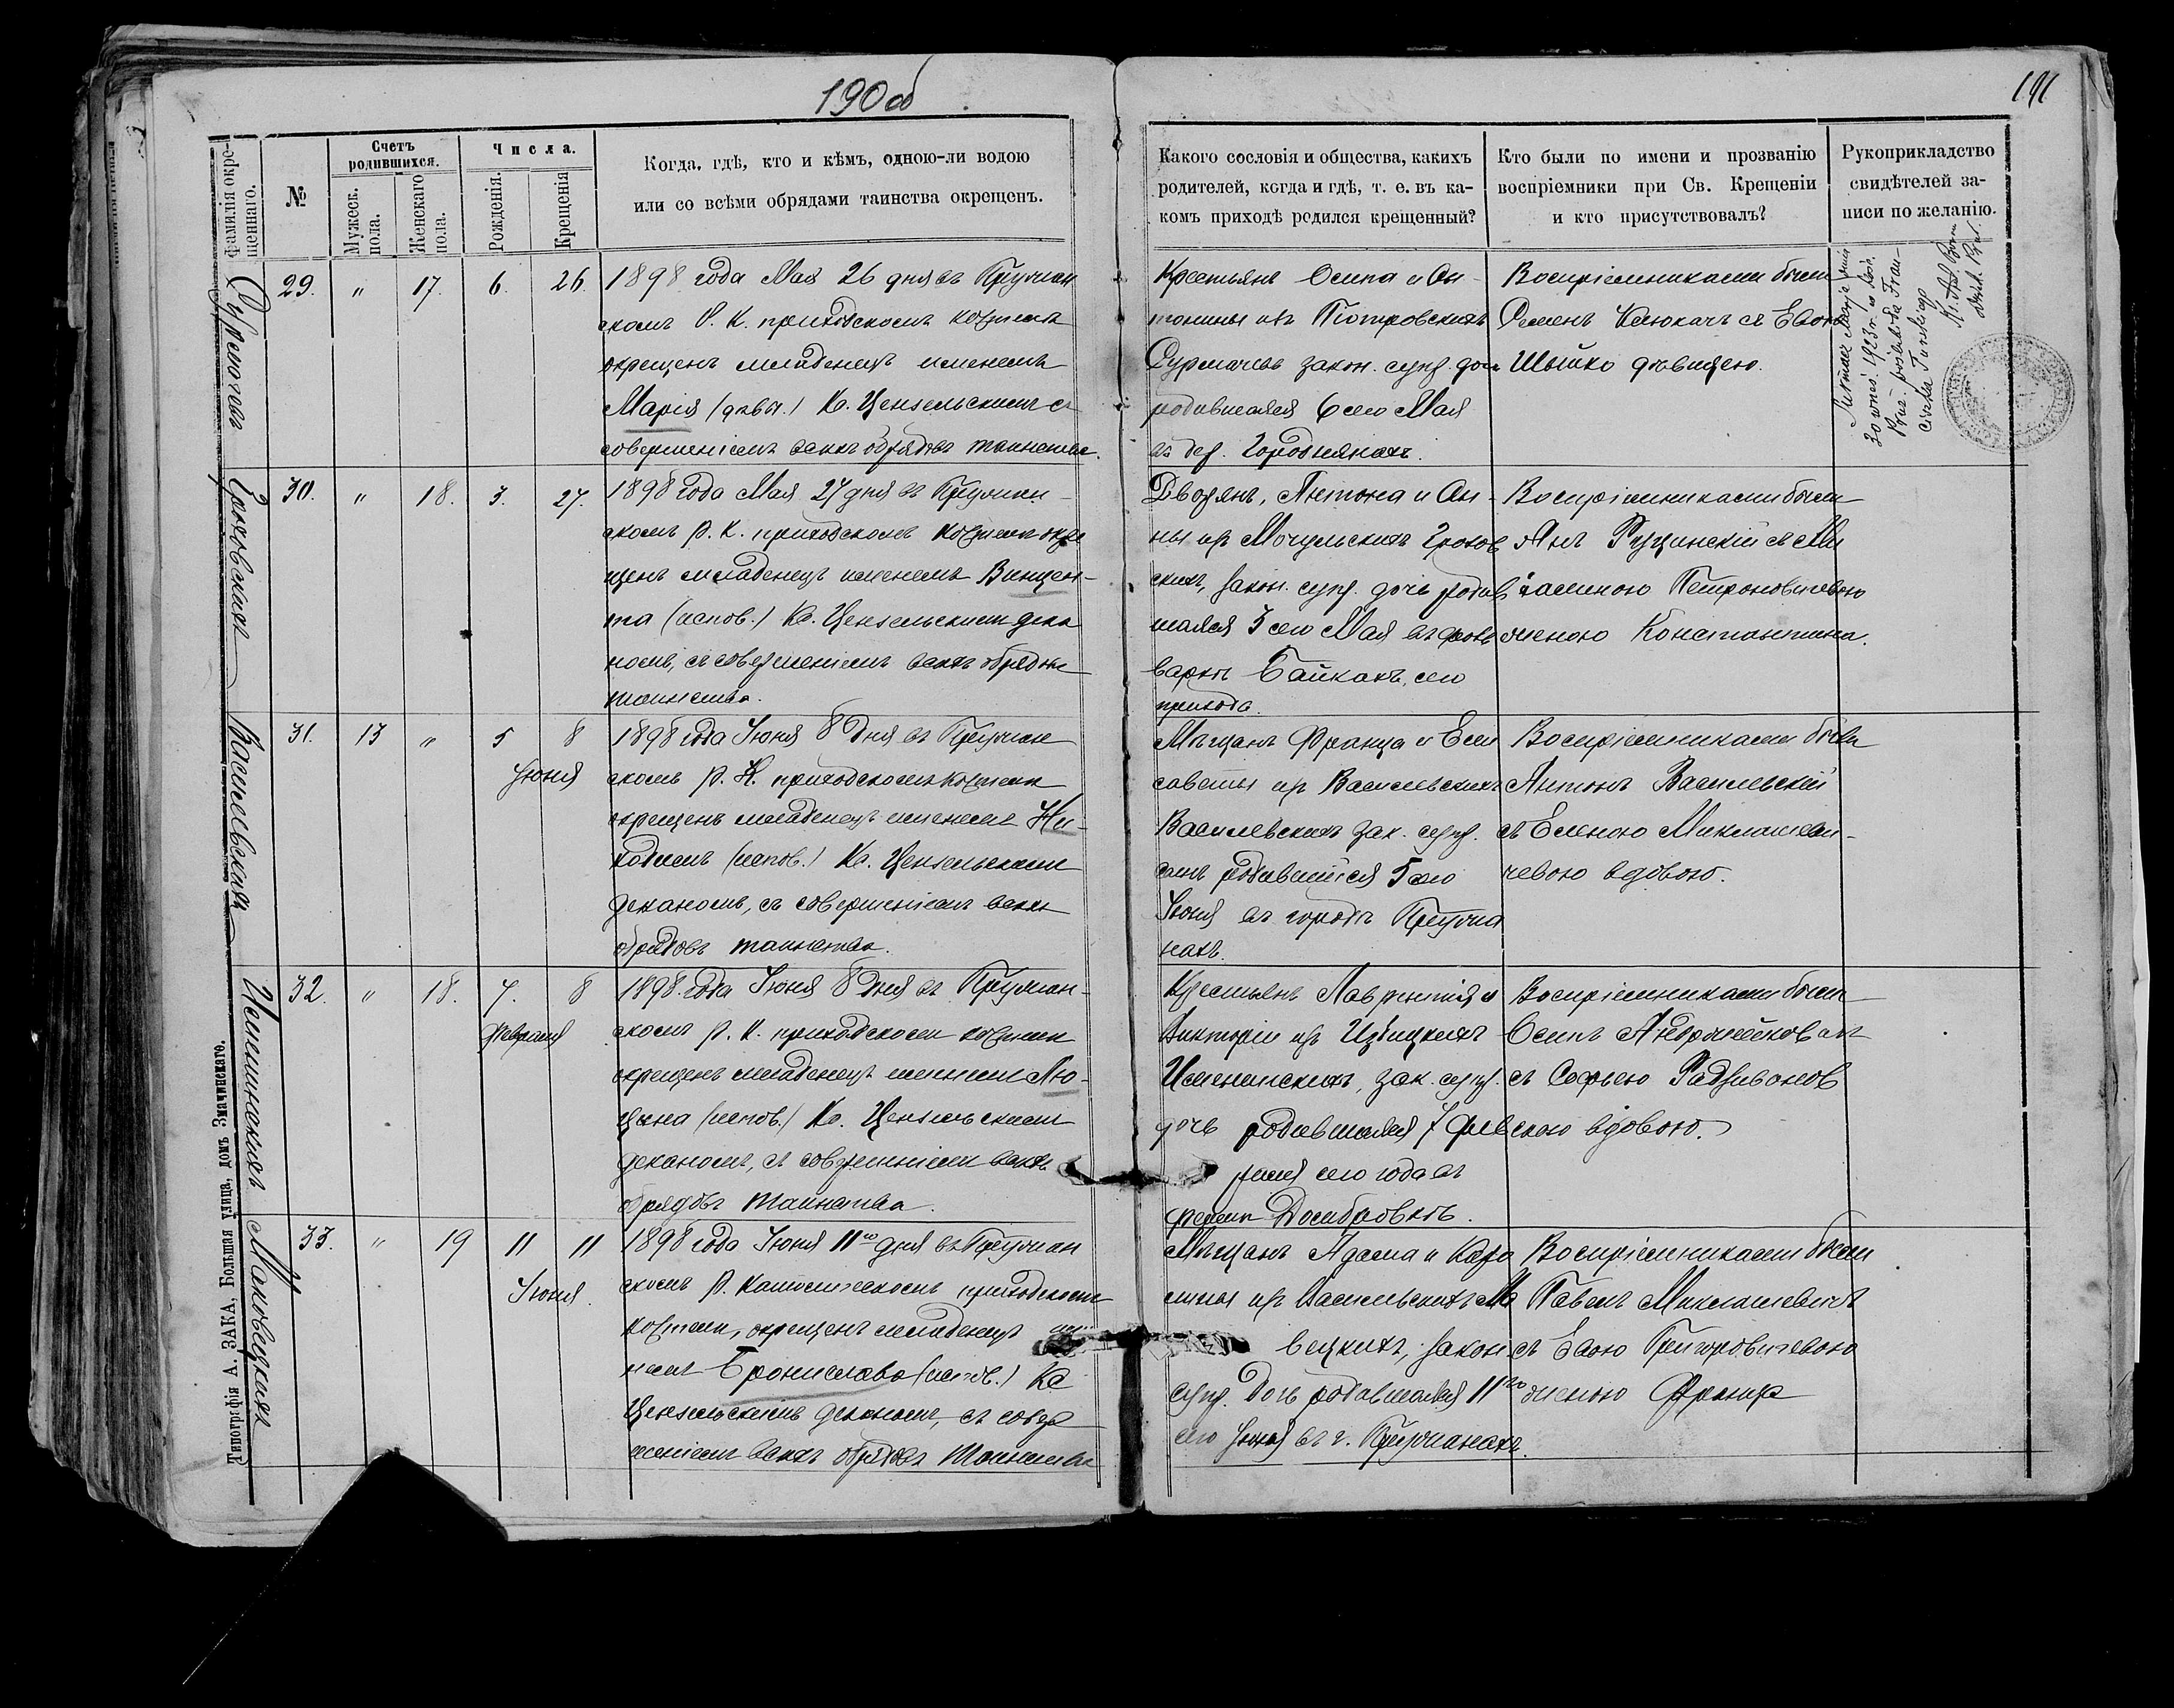 190 об
191
Фамилія окре-
щеннаго.
№
Счетъ
родившихся.
Мужеск.
пола.
Женскаго
пола.
Числа.
Рожденія.
Крещенія
Когда, гдѣ, кто и кѣмъ, одною-ли водою
или со всѣми обрядами таинства окрещенъ.
Какого сословія и общества, какихъ
родителей, когда и гдѣ, т. е. въ ка-
комъ приходѣ родился крещенный?
Кто были по имени и прозванію
воспріемники при Св. Крещеніи
и кто присутствовалъ?
Рукоприкладство
свидѣтелей за-
писи по желанію.
29. " 17. 6. 26.
1898 года Мая 26 дня въ Пружан
скомъ Р. К. приходскомъ костелѣ
окрещенъ младенецъ именемъ
Марія Кс. Цензельскимъ съ
совершеніемъ всѣхъ обрядовъ таинства.
Крестьянъ Осипа и Ан-
тонины изъ Піотровскихъ
закон. супр. дочь
родившаяся 6 сего Мая
въ дер. Городнянахъ.
Воспріемниками были
Семенъ съ Евою
Шыйко дѣвицею.
30 1923 r.
Ewskich
30. " 18. 3. 27.
1898 года Мая 27 дня въ Пружан-
скомъ Р. К. приходскомъ костелѣ окре
щенъ младенецъ именемъ Винцен-
та (испов.) Кс. Цензельскимъ дека
номъ, съ совершеніемъ всѣхъ обрядовъ
таинства.
Дворянъ, Антона и Ан-
ны изъ Мочульскихъ
скихъ, закон. супр. дочь родив
шаяся 3 сего Мая въ фоль
варкѣ Байкахъ, сего
прихода.
Воспріемниками были
Янъ съ
Петроновичевою
женою Константина.
Василевскихъ
31. 13 " 5 8
Іюня
1898 года Іюня 8 дня въ Пружан
скомъ Р. К. приходскомъ костелѣ
окрещенъ младенецъ именемъ Ни-
кодимъ (испов.) Кс. Цензельскимъ
деканомъ, съ совершеніемъ всѣхъ
обрядовъ таинства.
Мѣщанъ Франца и Ели
саветы изъ Василевскихъ
Василевскихъ зак. супр.
сынъ родившійся 5 сего
Іюня въ городѣ Пружа
нахъ.
Воспріемниками были
Антонъ Василевскій
съ Еленою Миклашеви-
чевою вдовою.
32. " 18. 7. 8
Февраля
1898 года Іюня 8 дня въ Пружан-
скомъ Р. К. приходскомъ костелѣ
окрещенъ младенецъ именемъ Лю-
цына (испов.) Кс. Цензельскимъ
деканомъ, съ совершеніемъ всѣхъ
обрядовъ таинства.
Крестьянъ Лаврентія и
Викторіи изъ Избицкихъ
зак. супр.
дочь родившаяся 7 Фев
раля сего года въ
Воспріемниками были
Осипъ
съ Софьею Радзивонов
скою вдовою.
Маковецкихъ
33. " 19 11 11
Іюня.
1898 года Іюня 11го дня въ Пружан
скомъ Р. Католическомъ приходскомъ
костелѣ, окрещенъ младенецъ име
немъ Бронислава (испов.) Кс
Цензельскимъ деканомъ, съ совер
шеніемъ всѣхъ обрядовъ таинства
Мѣщанъ Адама и Каро
лины изъ Василевскихъ Ма
вецкихъ, закон
супр. дочь родившаяся 11го
сего Іюня въ г. Пружанахъ.
Воспріемниками были
Павелъ Миклашевичъ
съ Евою Григоровичевою
женою Франца
Типографія А. ЗАКА, Большая улица, домъ Значинскаго.